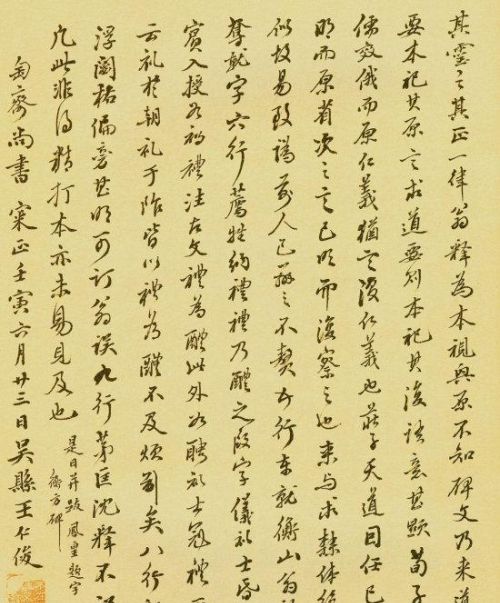 其靈之其正一律翁釋為本視與原不知碑文乃来道
要本祀其原言求道要則本祀其復語意甚顯荀子
儒效俄而原仁義猶言復仁義也莊子天道因任已
明而原省次之言已明而復察之也来与求隸体
似故易致譌前人已辨之不贅五行東就衡山翁
奪就字六行薦牲納禮禮乃醴之叚字儀礼士昏
賓入授如初禮注古文禮為醴此外如聘礼士冠禮
云礼於朝礼于阼皆以禮為醴不及煩剬矣八行
浮闕祐偏旁甚明可訂翁誤九行第匡沈釋不
凡此非得精打本亦未易見及也
是日并跋鳳皇題字
衡方碑
匋齋尚書 寀正壬寅六月廿三日吳縣王仁俊